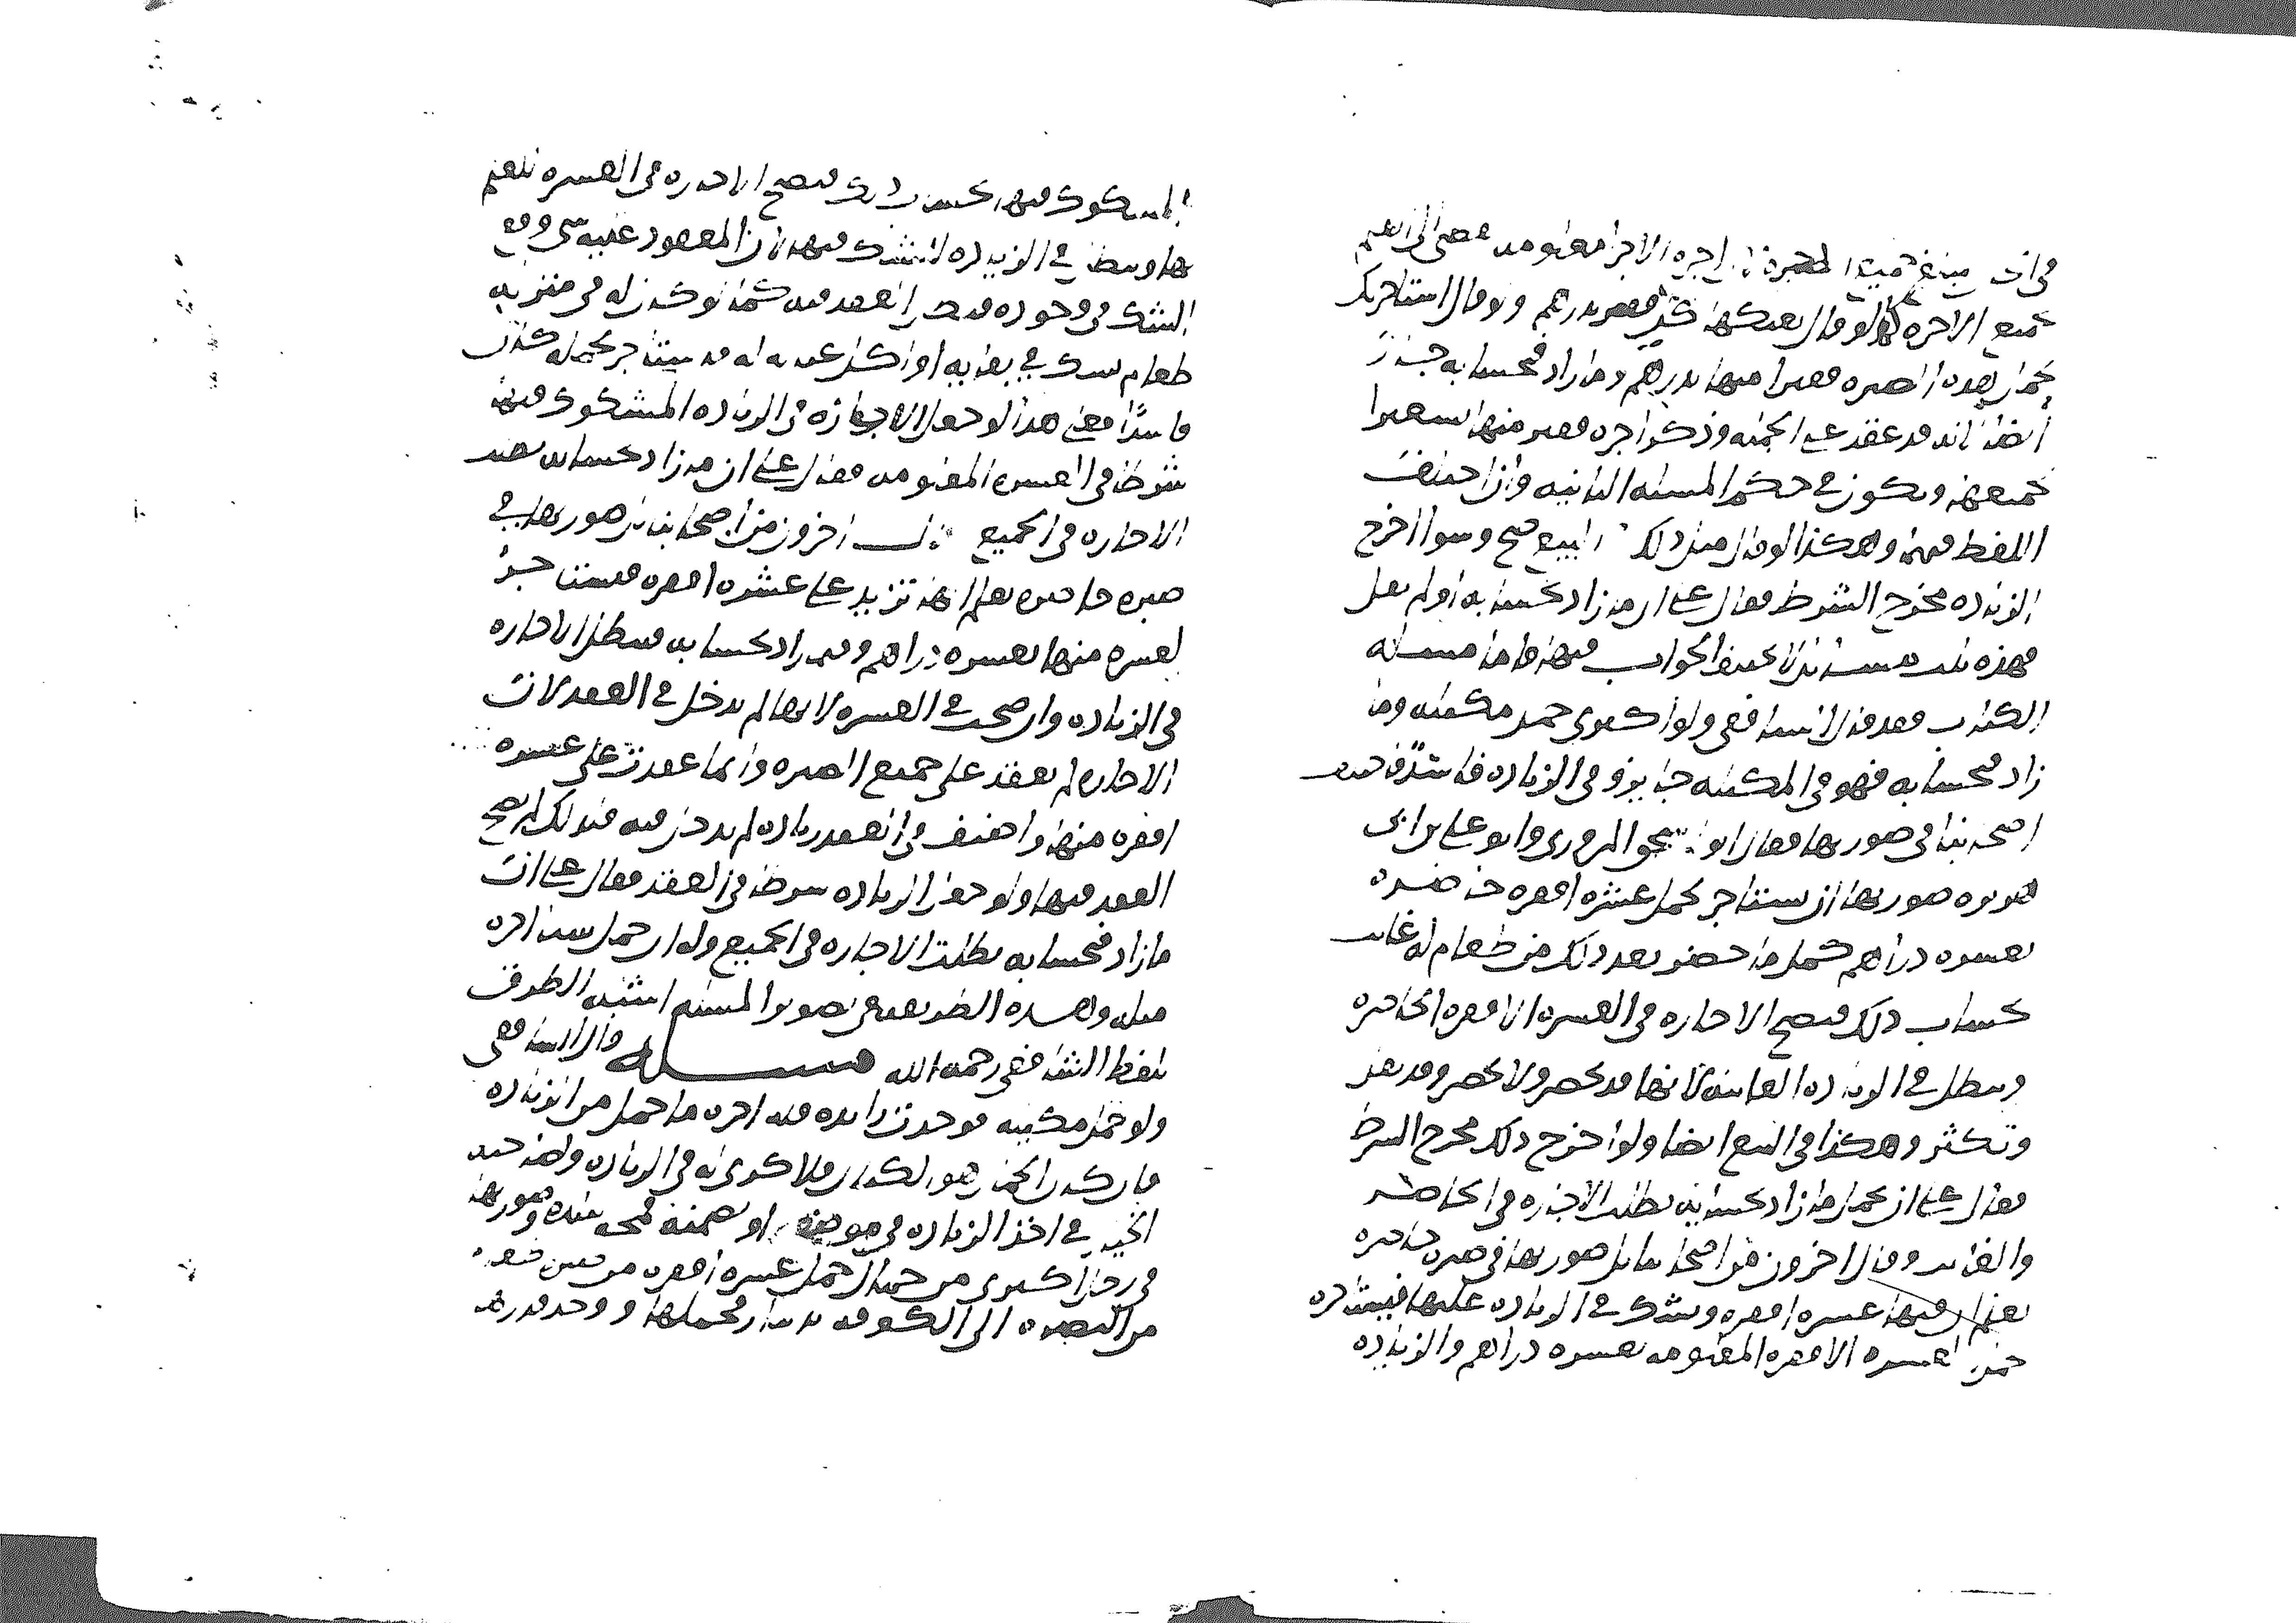 في ان مبلغ جميع الصبرة اجرة الاجزا معلومه فصح الى العلم
بجميع الاجرة كما لو قال بعتكها كل قفيز بدرهم ولو قال استاجرتك
لحمل هذه الصبره قفيزا منها بدرهم وما زاد فبحسابه جاز
ايضا لانه قد عقد على الجملة وذكر اجره قفيز منها تسعيرا
لجميعها ويكون في حكم المسئله الثانيه وان اختلف
اللفظ فيهما وهكذا لو قال مثل ذلك في البيع صح وسوا اخرج
الزياده مخرج الشرط فقال على ان ما زاد بحسابه او لم يقل
فهذه ثلث مسائل لا يختلف الجواب فيها فاما مسئله
الكتاب فقد قال الشافعي ولو اكترى حمل مكيله وما
زاد فبحسابه فهو في المكيله جايز وفي الزياده فاسد فاختلف
اصحابنا في صورتها فقال ابو اسحق المروزي وابو علي بن ابي
هريره صورتها ان يستاجر لحمل عشره اقفزه حاضره
بعشره دراهم لحمل ما حضر بعد ذلك من طعام له غايب
بحساب ذلك فتصح الاجاره في العشره الاقفزه الحاضره
وتبطل في الزياده الغايبه لانها قد تحضر ولا تحضر وقد تقل
وتكثر وهكذا في البيع ايضا ولو اخرج ذلك مخرج الشرط
فقال على ان تحمل ما زاد بحسابه بطلت الاجاره في الحاضر
والغايب وقال اخرون من اصحابنا بل صورتها في صبره حاضره
يعلم ان فيها عشره اقفزه ويشك في الزياده عليها فيستاجره
لحمل العشره الاقفزه المعلومه بعشره دراهم والزياده
المشكوك فيها بحساب ذلك فتصح الاجاره في العشره للعلم
بها وتبطل في الزياده للشك فيها لان المعقود عليه متى وقع
الشك في وجوده فبطل العقد فيه كما لو كان له في منزله
طعام يشك في بقايه او اكله عياله فاستاجر لحمله كان
فاسدا فعلى هذا لو جعل الاجازه في الزياده المشكوك فيها
شرطا في العشره المعلومه فقال على ان ما زاد بحسابه بطلت
الاجاره في الجميع وقال اخرون من اصحابنا بل صورتها في
صبره حاضره يعلم انها تزيد على عشره اقفزه فيستاجره
لعشره منها بعشره دراهم وما زاد بحسابه فتبطل الاجاره
في الزياده وان صحت في العشره لانها لم تدخل في العقد لان
الاجاره لم تعقد على جميع الصبره وانما عقدت على عشره
اقفزه منها واضيف الى العقد زياده لم تدخل فيه فلذلك لم يصح
العقد فيها ولو جعل الزياده شرطا في العقد فقال على ان
ما زاد فبحسابه بطلت الاجاره في الجميع وله ان حمل شيئا اجره
مثله وهذه الطريقه في تصوير المسئله اشبه الطرق
بلفظ الشافعي رحمه الله مسئله قال الشافعي
ولو حمل مكيله فوجدت زايده فله اجره ما حمل من الزياده
فان كان الحمال هو الكيال فلا كرى له في الزياده ولصاحبه
الخيار في اخذ الزياده في موضعه او يضمنه قمحه ببلده وصورتها
في رجل اكترى من جمال حمل عشره اقفزه من معين طعام
من البصره الى الكوفه بدينار فحملها ووجد قدرها